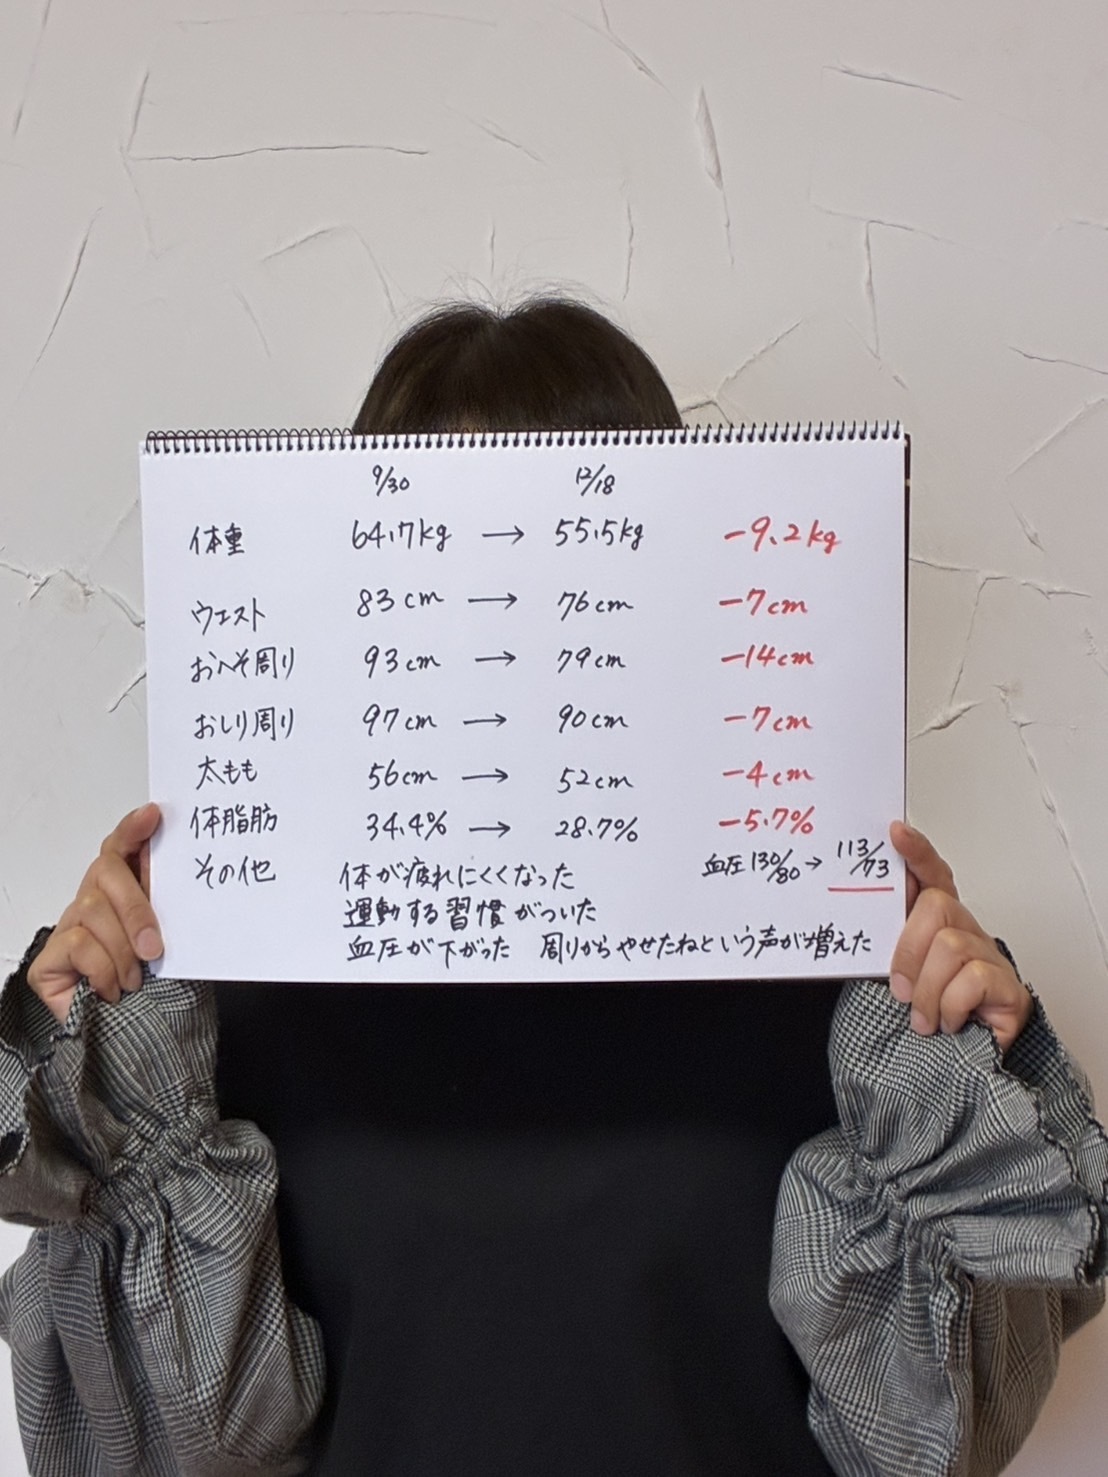 9/30 12/18
体重 64.7kg → 55.5kg -9.2kg
ウエスト 83cm → 76cm -7cm
おへそ周り 93cm → 79cm -14cm
おしり周り 97cm → 90cm -7cm
太もも 56cm → 52cm -4cm
体脂肪 34.4% → 28.7% -5.7%
その他 体が疲れにくくなった 血圧 130/80 → 113/73
運動する習慣がついた
血圧が下がった 周りからやせたねという声が増えた